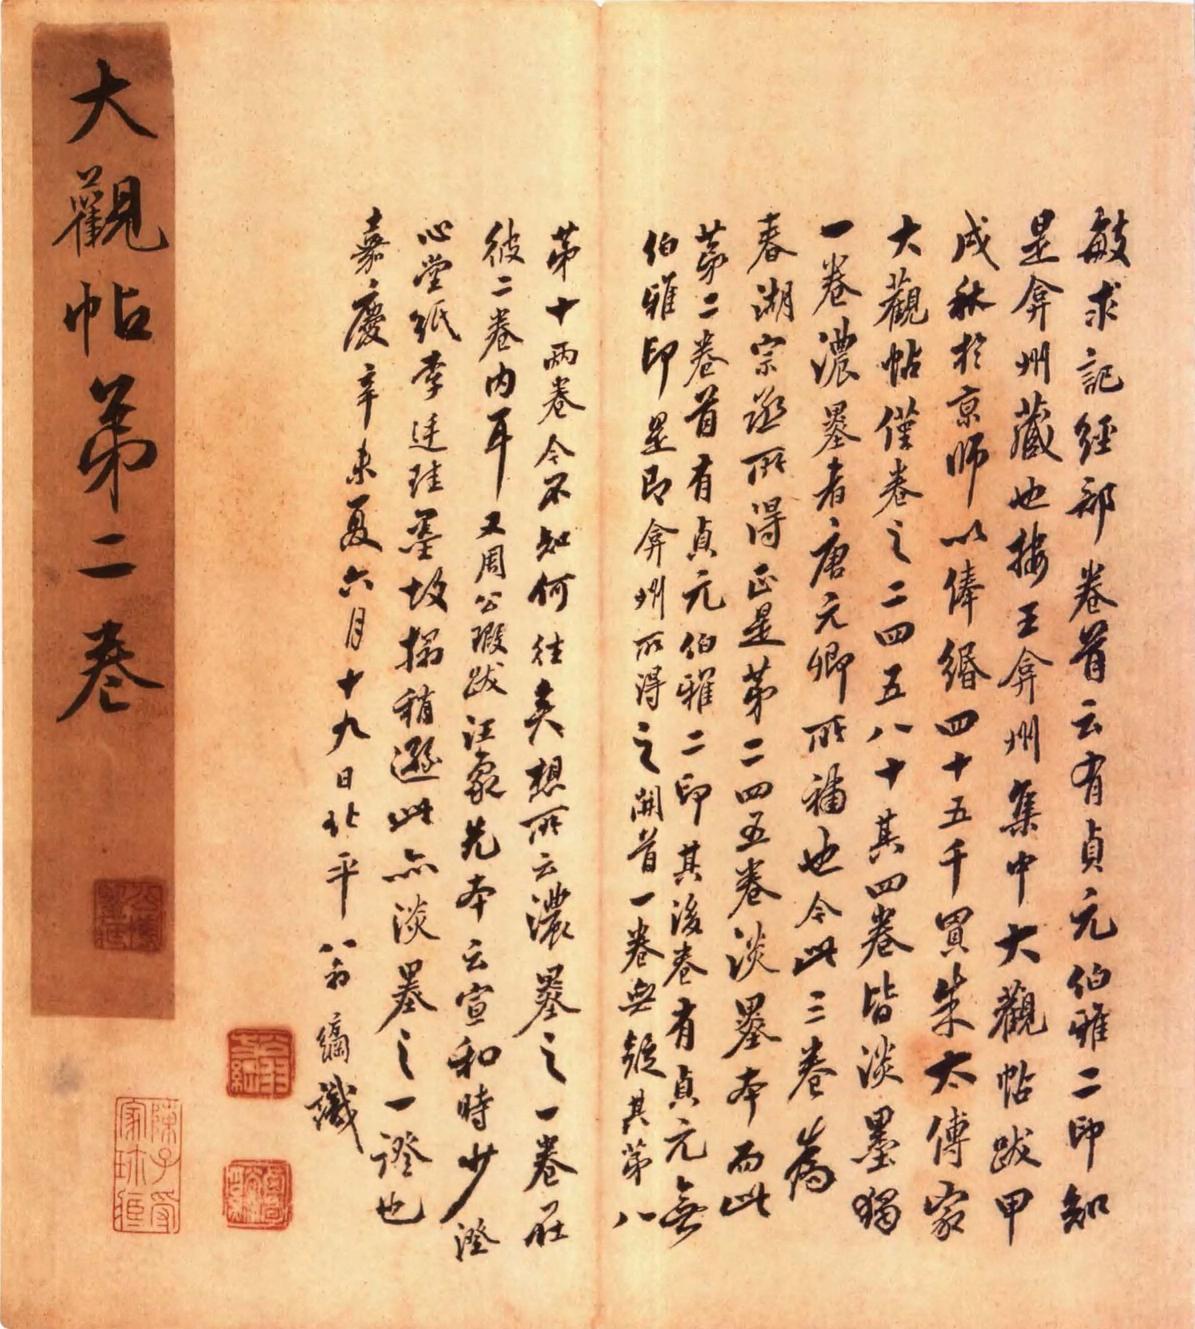 敏求記經部卷首云有貞元伯雅二印知
是弇州藏也按王弇州集中大觀帖跋甲
戌秋於京師以俸緡四十五千買朱太傅家
大觀帖僅卷之二四五八十其四卷皆淡墨獨
一卷濃墨者唐元卿所補也今此三卷為
春湖宗丞所得正是第二四五卷淡墨本而此
第二卷首有貞元伯雅二印其後卷有貞元無
伯雅印是即弇州所得之開首一卷無疑其第八
第十兩卷今不知何往矣想所云濃墨之一卷在
彼二卷內耳又周公瑕跋汪象先本云宣和時少澄
心堂紙李廷珪墨故搨稍遜此亦淡墨之一證也
嘉慶辛未夏六月十九日北平八十翁識
大觀帖第二卷
陳子受
家珍臧